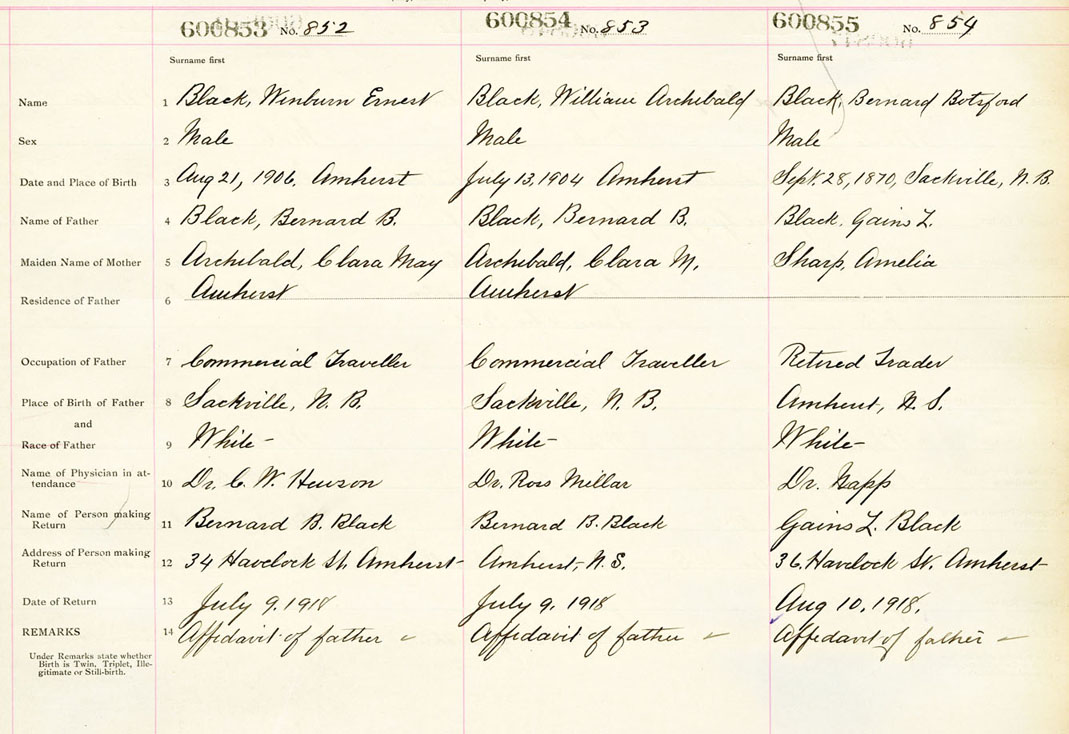 600853 No. 852 600854 No. 853 600855 No. 854
Surname first Surname first Surname first
Name 1 Black, Winburn Ernest Black, William Archibald Black, Bernard Botsford
Sex 2 Male Male Male
Date and Place of Birth 3 Aug 21, 1906. Amherst July 13, 1904 Amherst Sept. 28, 1870, Sackville, N. B.
Name of Father 4 Black, Bernard B. Black, Bernard B. Black, Gains L.
Maiden Name of Mother 5 Archibald, Clara May Archibald, Clara M. Sharp, Amelia
Residence of Father 6 Amherst Amherst
Occupation of Father 7 Commercial Traveller Commercial Traveller Retired Trader
Place of Birth of Father 8 Sackville, N. B. Sackville, N. B. Amherst, N. S.
and
Race of Father 9 White – White – White –
Name of Physician in at-
tendance 10 Dr. C. W. Hewson Dr. Ross Millar Dr.
Name of Person making
Return 11 Bernard B. Black Bernard B. Black Gains L. Black
Address of Person making
Return 12 34 Havelock St. Amherst Amherst, N. S. 36 Havelock St. Amherst
Date of Return 13 July 9, 1918 July 9, 1918 Aug 10, 1918.
REMARKS 14 Affidavit of father – Affidavit of father – Affidavit of father –
Under Remarks state whether
Birth is Twin, Triplet, Ille-
gitimate or Still-birth.